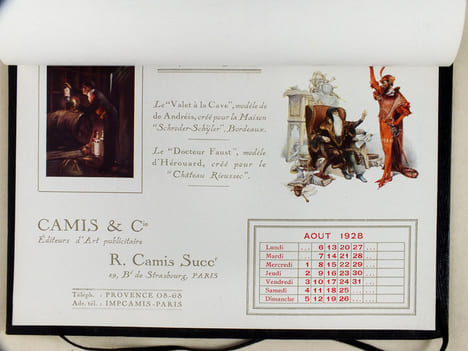 Le "Valet à la Cave", modèle de
de Andréis, créé pour la Maison
"Schroder-Schÿler", Bordeaux.
Le "Docteur Faust", modèle
d'Hérouard, créé pour le
"Château Rieussec".
CAMIS & Cie
Éditeurs d'Art publicitaire
R. Camis Succr
19, Bd de Strasbourg, PARIS
Téléph. : PROVENCE 08-68
Adr. tél. : IMPCAMIS-PARIS
AOUT 1928
Lundi ... 6 13 20 27 ...
Mardi ... 7 14 21 28 ...
Mercredi 1 8 15 22 29 ...
Jeudi 2 9 16 23 30 ...
Vendredi 3 10 17 24 31 ...
Samedi 4 11 18 25 ... ...
Dimanche 5 12 19 26 ... ...